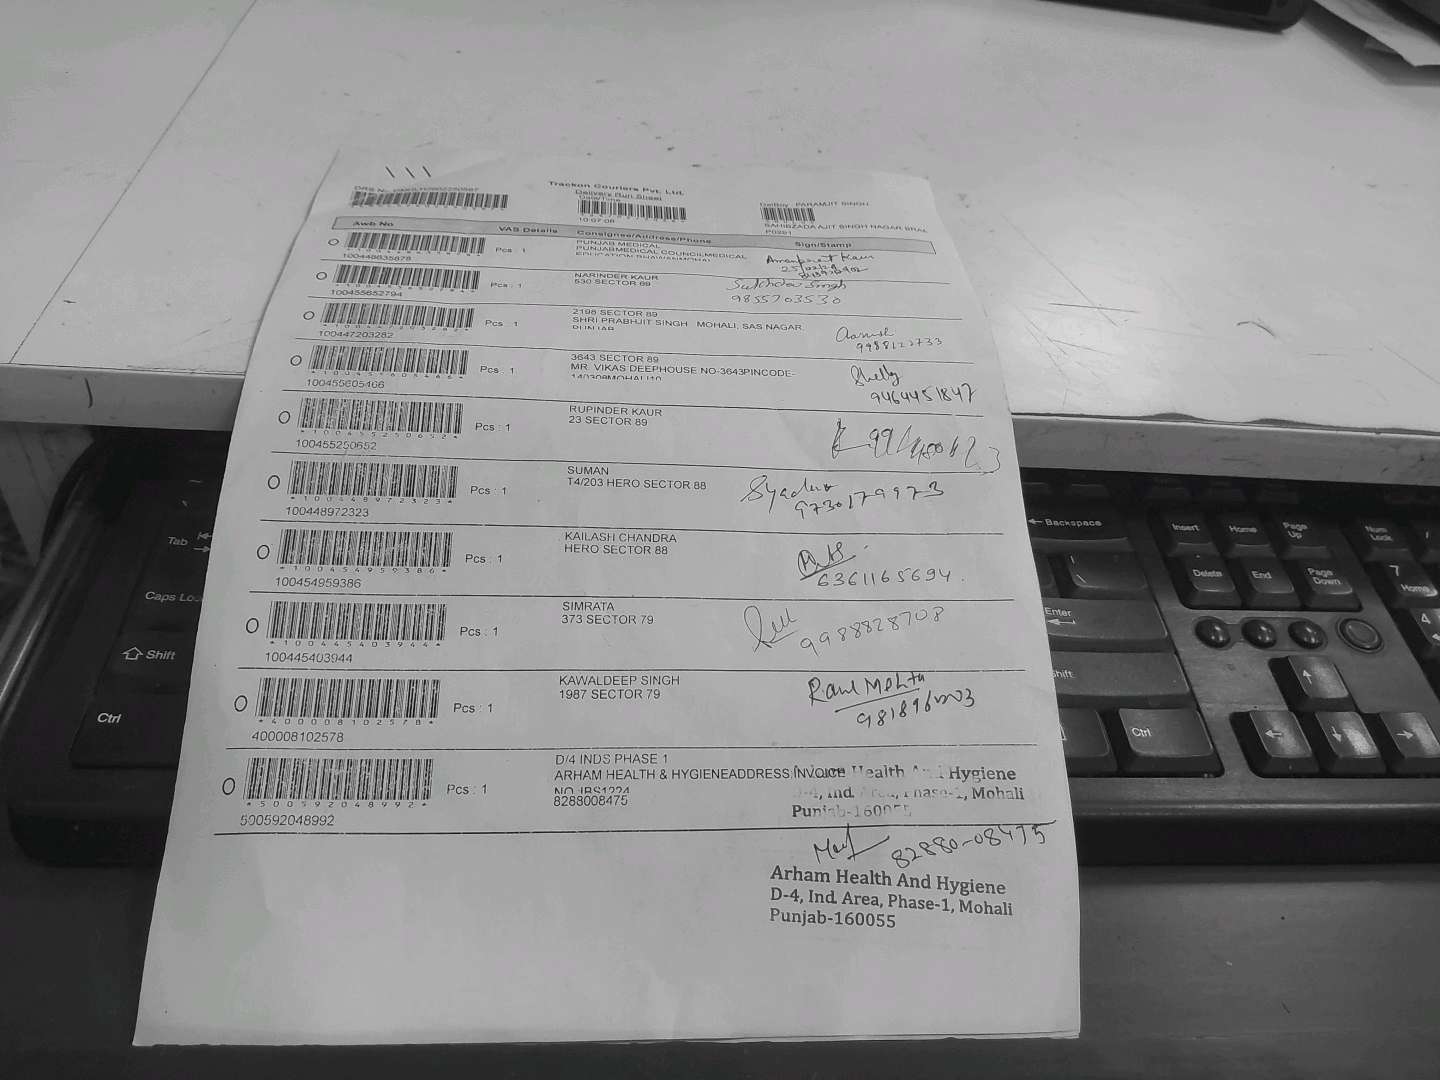 Trackon Couriers Pvt. Ltd.
Delivery Run Sheet
Date/Time
10 07 08
DelBoy PARAMJIT SINGH
SAHIBZADA AJIT SINGH NAGAR BRAL
Awb No VAS Details Consignee/Address/Phone Sign/Stamp
100448635878 Pcs : 1 PUNJAB MEDICAL
PUNJABMEDICAL COUNCILMEDICAL
Amanpreet Kaur
100455652794 Pcs : 1 NARINDER KAUR
530 SECTOR 89
9855703530
100447203282 Pcs : 1 2198 SECTOR 89
SHRI PRABHJIT SINGH MOHALI, SAS NAGAR,
PUNJAB
9988122733
100455605466 Pcs : 1 3643 SECTOR 89
MR. VIKAS DEEPHOUSE NO-3643PINCODE-
140308MOHALI10
Shelly
9464451847
*100455250652*
100455250652 Pcs : 1 RUPINDER KAUR
23 SECTOR 89
*100448972323*
100448972323 Pcs : 1 SUMAN
T4/203 HERO SECTOR 88
9730179973
*100454959386*
100454959386 Pcs : 1 KAILASH CHANDRA
HERO SECTOR 88
6361165694
*100445403944*
100445403944 Pcs : 1 SIMRATA
373 SECTOR 79
9988828708
*400008102578*
400008102578 Pcs : 1 KAWALDEEP SINGH
1987 SECTOR 79
*500592048992*
500592048992 Pcs : 1 D/4 INDS PHASE 1
ARHAM HEALTH & HYGIENEADDRESS INVOICE
NO IBS1224
8288008475
Health And Hygiene
D-4, Ind Area, Phase-1, Mohali
Punjab-160055
82880-08475
Arham Health And Hygiene
D-4, Ind. Area, Phase-1, Mohali
Punjab-160055
Tab
Caps Lock
Shift
Ctrl
Backspace
Enter
Shift
Ctrl
Insert Home Page Up
Delete End Page Down
Num Lock
7 Home
4